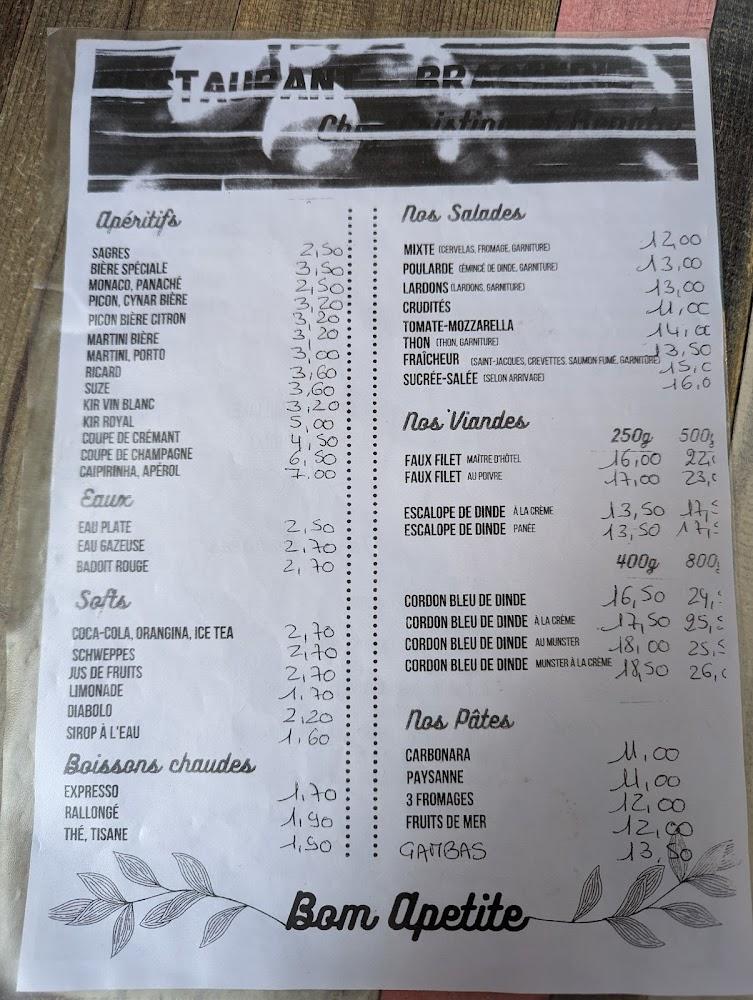 RESTAURANT BRASSERIE
Apéritifs
SAGRES 2,50
BIÈRE SPÉCIALE 3,50
MONACO, PANACHÉ 2,50
PICON, CYNAR BIÈRE 3,20
PICON BIÈRE CITRON 3,20
MARTINI BIÈRE 3,20
MARTINI, PORTO 3,00
RICARD 3,60
SUZE 3,60
KIR VIN BLANC 3,20
KIR ROYAL 5,00
COUPE DE CRÉMANT 4,50
COUPE DE CHAMPAGNE 6,50
CAIPIRINHA, APÉROL 7.00
Eaux
EAU PLATE 2,50
EAU GAZEUSE 2,70
BADOIT ROUGE 2,70
Softs
COCA-COLA, ORANGINA, ICE TEA 2,70
SCHWEPPES 2,70
JUS DE FRUITS 2,70
LIMONADE 1.70
DIABOLO 2,20
SIROP À L'EAU 1,60
Boissons chaudes
EXPRESSO 1,70
RALLONGÉ 1,90
THÉ, TISANE 1,90
Nos Salades
MIXTE (CERVELAS, FROMAGE, GARNITURE) 12,00
POULARDE (ÉMINCÉ DE DINDE, GARNITURE) 13,00
LARDONS (LARDONS, GARNITURE) 13,00
CRUDITÉS 11,00
TOMATE-MOZZARELLA 14,00
THON (THON, GARNITURE) 13,50
FRAÎCHEUR (SAINT-JACQUES, CREVETTES, SAUMON FUMÉ, GARNITURE) 15,0
SUCRÉE-SALÉE (SELON ARRIVAGE) 16,0
Nos Viandes
250g 500g
FAUX FILET MAÎTRE D'HÔTEL 16,00 22,
FAUX FILET AU POIVRE 17,00 23,
ESCALOPE DE DINDE À LA CRÈME 13,50 17,
ESCALOPE DE DINDE PANÉE 13,50 17,
400g 800g
CORDON BLEU DE DINDE 16,50 24,
CORDON BLEU DE DINDE À LA CRÈME 17,50 25,
CORDON BLEU DE DINDE AU MUNSTER 18,00 25,
CORDON BLEU DE DINDE MUNSTER À LA CRÈME 18,50 26,
Nos Pâtes
CARBONARA 11,00
PAYSANNE 11,00
3 FROMAGES 12,00
FRUITS DE MER 12,00
GAMBAS 13,50
Bom Apetite